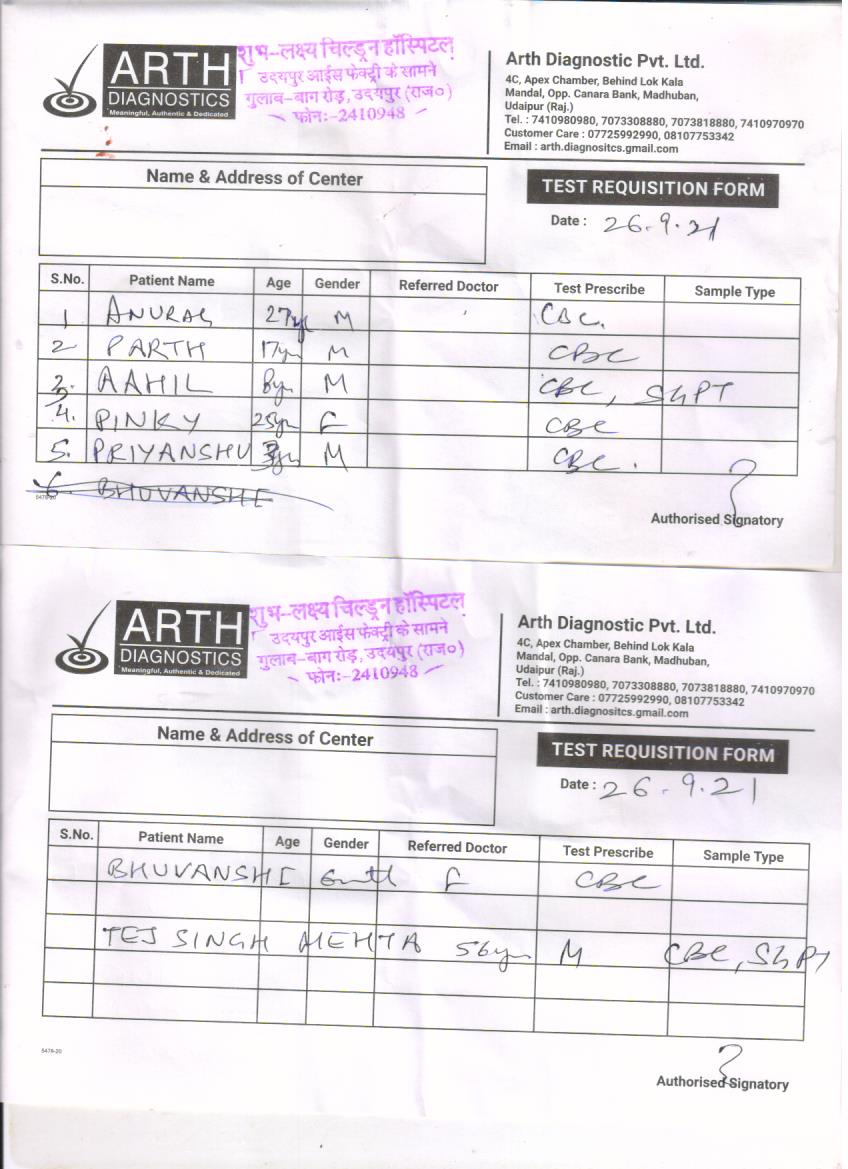 ARTH
DIAGNOSTICS
Meaningful, Authentic & Dedicated
शुभ-लक्ष्य चिल्ड्रन हॉस्पिटल
उदयपुर आईस फेक्ट्री के सामने
गुलाब-बाग रोड़, उदयपुर (राज०)
फोन:-2410948
Arth Diagnostic Pvt. Ltd.
4C, Apex Chamber, Behind Lok Kala
Mandal, Opp. Canara Bank, Madhuban,
Udaipur (Raj.)
Tel. : 7410980980, 7073308880, 7073818880, 7410970970
Customer Care : 07725992990, 08107753342
Email : arth.diagnositcs.gmail.com
Name & Address of Center
TEST REQUISITION FORM
Date : 26.9.21
S.No. Patient Name Age Gender Referred Doctor Test Prescribe Sample Type
1 ANURAG 27yr M CBC.
2 PARTH 17yr M CBC
3. AAHIL 8yr M CBC, SGPT
4. PINKY 25yr F CBC
5. PRIYANSHU M CBC.
6. BHUVANSHI
5478-20
Authorised Signatory
ARTH
DIAGNOSTICS
Meaningful, Authentic & Dedicated
शुभ-लक्ष्य चिल्ड्रन हॉस्पिटल
उदयपुर आईस फेक्ट्री के सामने
गुलाब-बाग रोड़, उदयपुर (राज०)
फोन:-2410948
Arth Diagnostic Pvt. Ltd.
4C, Apex Chamber, Behind Lok Kala
Mandal, Opp. Canara Bank, Madhuban,
Udaipur (Raj.)
Tel. : 7410980980, 7073308880, 7073818880, 7410970970
Customer Care : 07725992990, 08107753342
Email : arth.diagnositcs.gmail.com
Name & Address of Center
TEST REQUISITION FORM
Date : 26.9.21
S.No. Patient Name Age Gender Referred Doctor Test Prescribe Sample Type
BHUVANSHI 6mth F CBC
TEJ SINGH MEHTA 56yr M CBC, SGPT
5478-20
Authorised Signatory